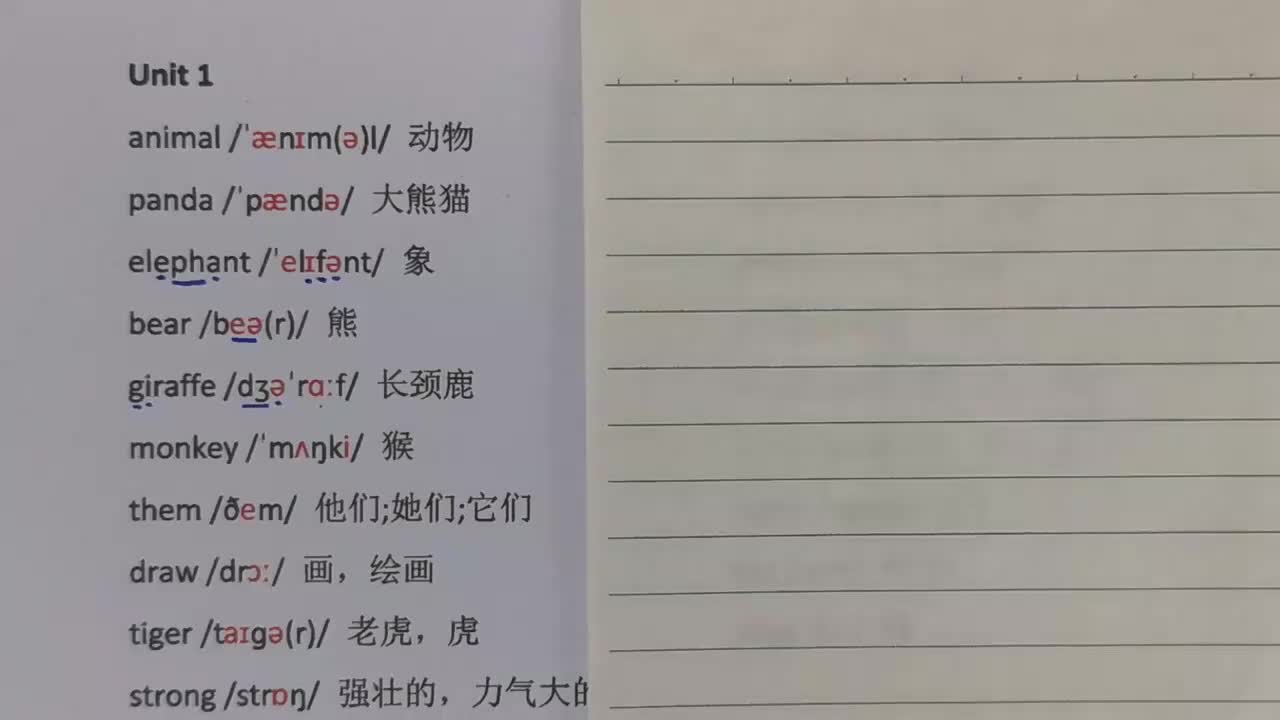 Unit 1
animal /ˈænɪm(ə)l/ 动物
panda /ˈpændə/ 大熊猫
elephant /ˈelɪfənt/ 象
bear /beə(r)/ 熊
giraffe /dʒəˈrɑːf/ 长颈鹿
monkey /ˈmʌŋki/ 猴
them /ðem/ 他们;她们;它们
draw /drɔː/ 画，绘画
tiger /taɪgə(r)/ 老虎，虎
strong /strɒŋ/ 强壮的，力气大的